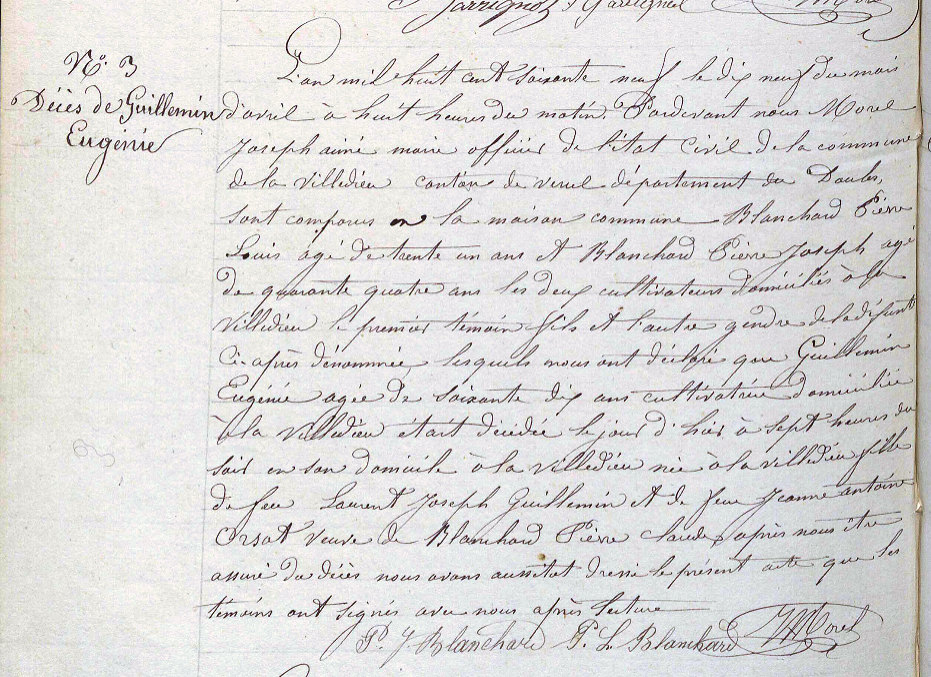 Jarrignot Garrigned Morel
N° 3
Décès de Guillemin
Eugénie
L'an mil huit cent soixante neuf le dix neuf du mois
d'avril à huit heures du matin. Pardevant nous Morel
Joseph aimé maire officier de l'état civil de la commune
de la Villedieu canton de vercel département du Doubs,
sont comparus en la maison commune Blanchard Pièrre
Louis agé de trente un ans et Blanchard Pièrre Joseph agé
de quarante quatre ans les deux cultivateurs domiciliés à la
Villedieu le premier témoin fils et l'autre gendre de la défunte
Ci-après dénommée lesquels nous ont déclaré que Guillemin
Eugénie agée de soixante dix ans cultivatrice domiciliée
à la Villedieu était décédée le jour d'hier à sept heures du
soir en son domicile à la Villedieu née à la villedieu fille
de feu Laurent Joseph Guillemin et de feue Jeanne antoine
Orsat veuve de Blanchard Pièrre claude, après nous être
assuré du décès nous avons aussitot dressé le présent acte que les
témoins ont signés avec nous après lecture
P. J. Blanchard P. L. Blanchard J Morel